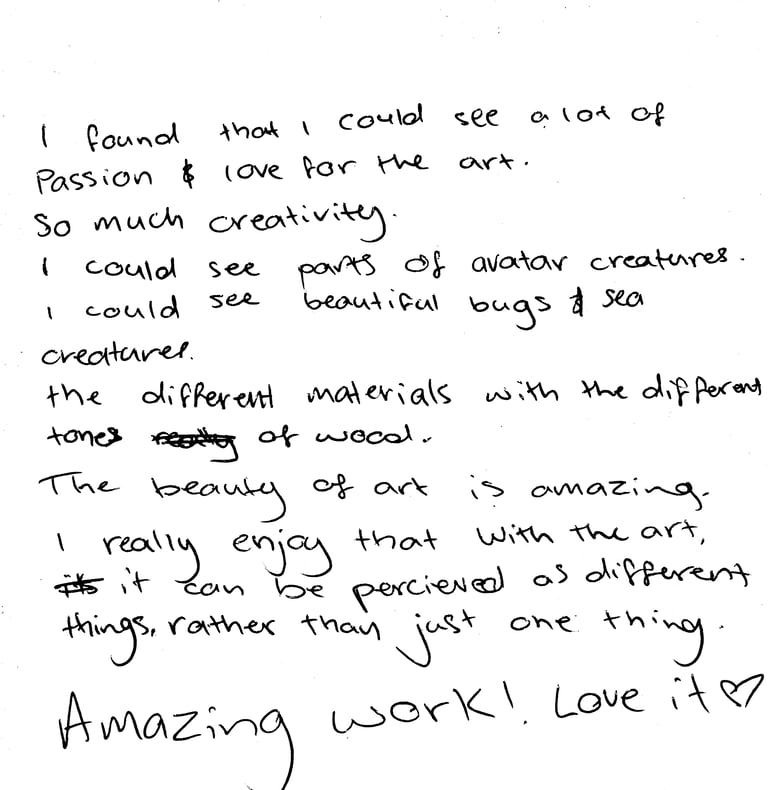 I found that I could see a lot of
Passion & love for the art.
So much creativity.
I could see parts of avatar creatures.
I could see beautiful bugs & sea
creatures.
the different materials with the different
tones of wood.
The beauty of art is amazing.
I really enjoy that with the art,
it can be percieved as different
things, rather than just one thing.
Amazing work! Love it♡